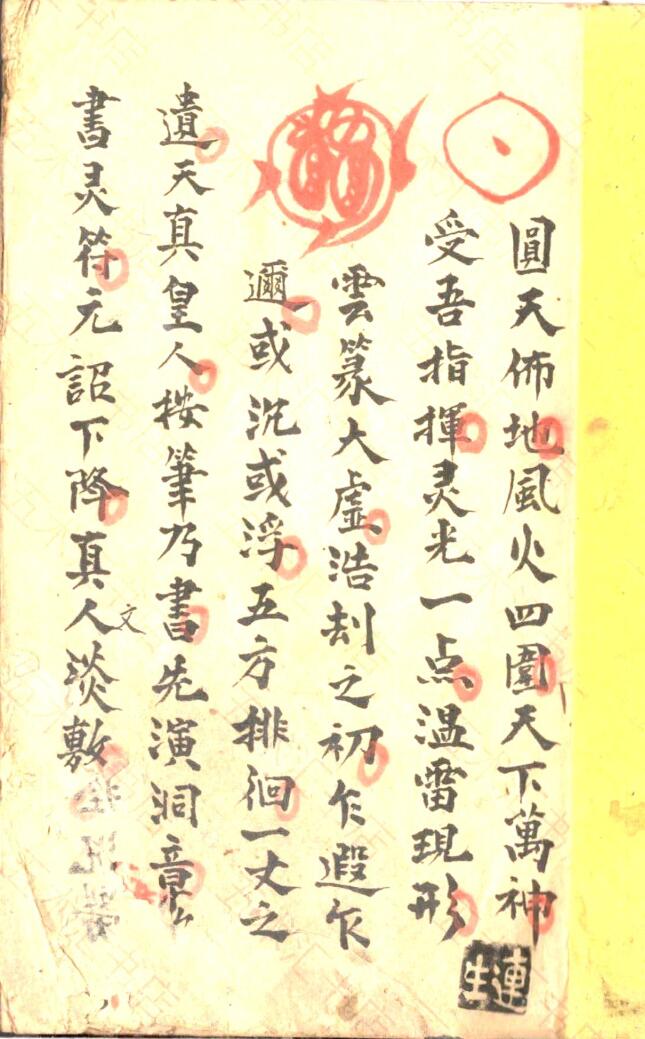 圓天佈地風火四圍天下萬神
受吾指揮灵光一点温雷現形
雲篆大虛浩刼之初乍遐乍
邇或沉或浮五方排徊一丈之
遺天真皇人按筆乃書先演洞章
書灵符元詔下降真人文淡敷
連生